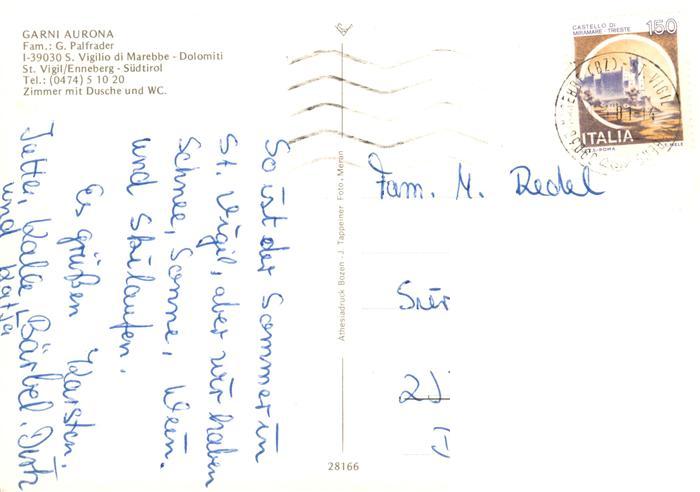 GARNI AURONA
Fam.: G. Palfrader
I-39030 S. Vigilio di Marebbe - Dolomiti
St. Vigil/Enneberg - Südtirol
Tel.: (0474) 5 10 20
Zimmer mit Dusche und WC.
So ist der Sommer in
St. Vigil, aber wir haben
Schnee, Sonne, Wein
und Skilaufen.
Es grüßen Karsten,
Jutta, Kalle, Bärbel, Dirk
und Katja
Athesiadruck Bozen - J. Tappeiner Foto - Meran
28166
CASTELLO DI
MIRAMARE - TRIESTE
150
ITALIA
Fam. M. Redel